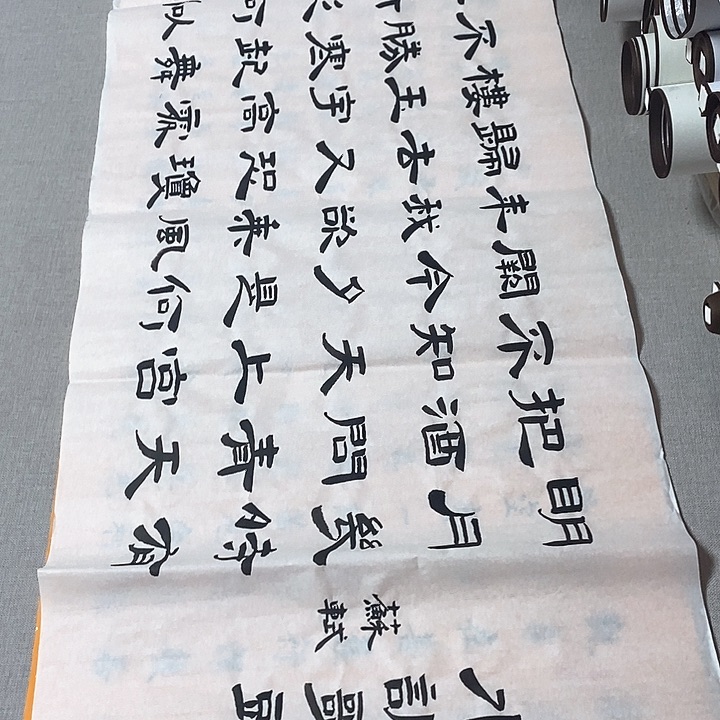 水調歌頭
蘇軾
明月幾時有
把酒問青天
不知天上宮
闕今夕是何
年我欲乘風
歸去又恐瓊
樓玉宇高處
不勝寒起舞
何似